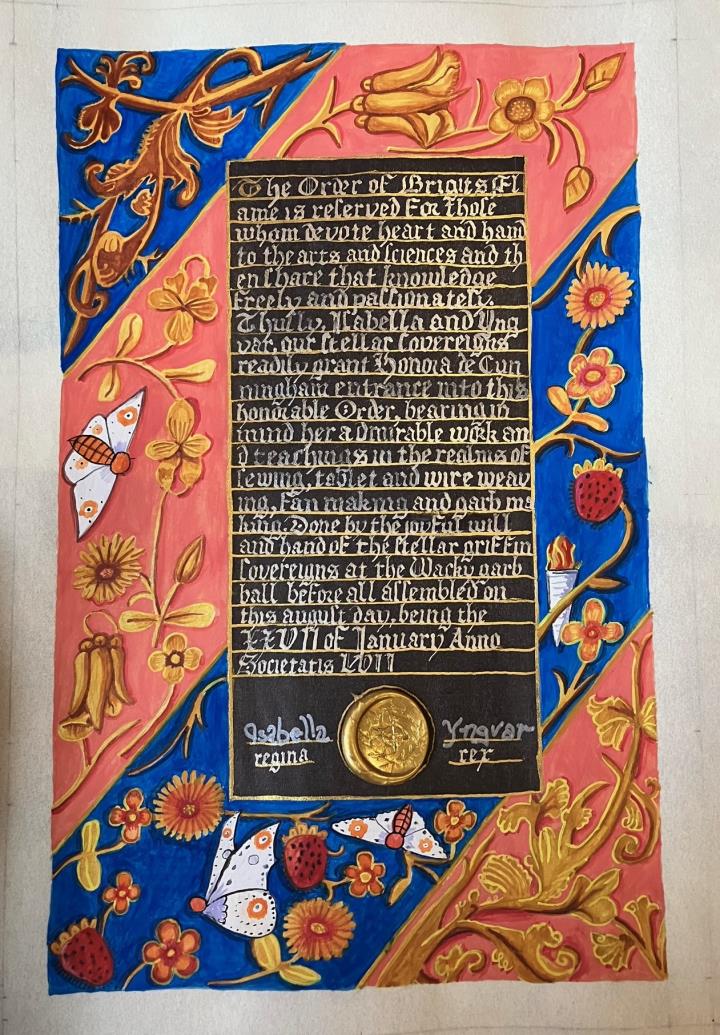 The Order of Brigits Fl
ame is reserved For those
whom devote heart and hand
to the arts and sciences and th
en share that knowledge
freely and passionately.
Thusly, Isabella and Yng
var, our stellar sovereigns
readily grant Honora de Cun
ningham entrance into this
honorable Order, bearing in
mind her admirable work an
d teachings in the realms of
sewing, tablet and wire weav
ing, Fan making and garb ma
king. Done by the joyful will
and hand of the stellar griffin
sovereigns at the Wacky garb
ball before all assembled on
this august day, being the
XXVII of January Anno
Societatis LVII
Isabella Yngvar
regina rex